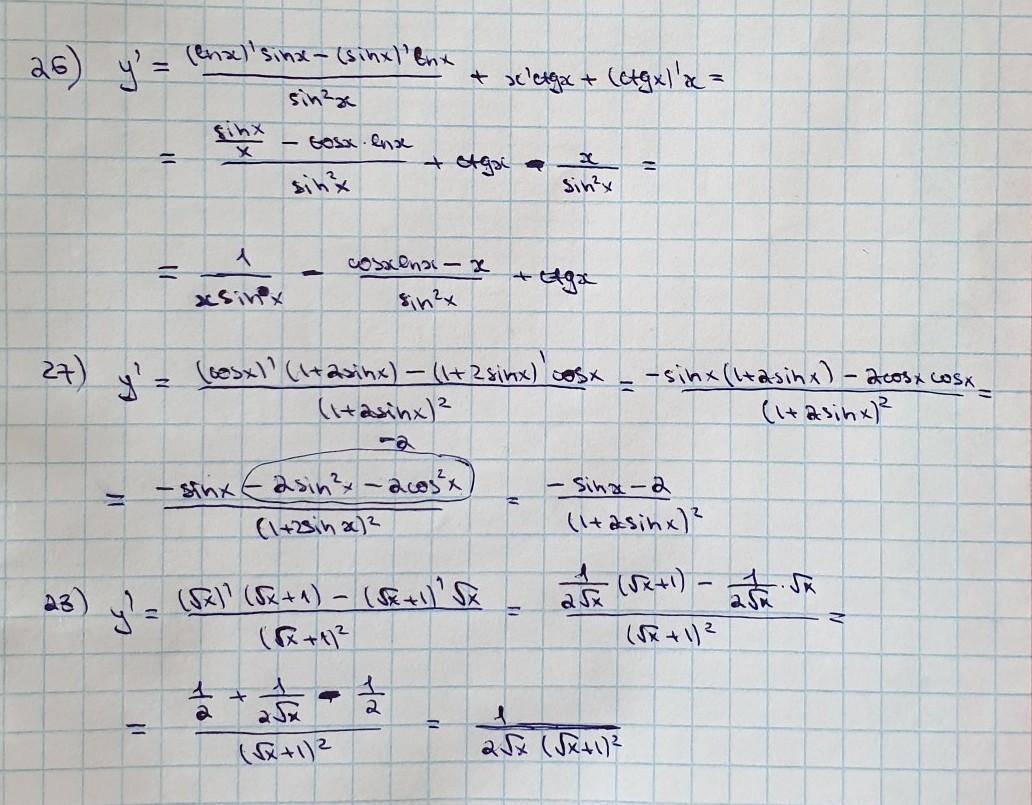 26) y' = ((lnx)' sinx - (sinx)' lnx)/(sin²x) + x'ctgx + (ctgx)'x =
= (sinx/x - cosx · lnx)/(sin²x) + ctgx - x/(sin²x) =
= 1/(x sin x) - (cosx lnx - x)/(sin²x) + ctgx
27) y' = ((cosx)' (1+2sinx) - (1+2sinx)' cosx)/((1+2sinx)²) = (-sinx(1+2sinx) - 2cosx cosx)/((1+2sinx)²) =
-2
= (-sinx - 2sin²x - 2cos²x)/((1+2sinx)²) = (-sinx - 2)/((1+2sinx)²)
28) y' = ((√x)' (√x+1) - (√x+1)' √x)/((√x+1)²) = (1/(2√x) (√x+1) - 1/(2√x) · √x)/((√x+1)²) =
= (1/2 + 1/(2√x) - 1/2)/((√x+1)²) = 1/(2√x (√x+1)²)